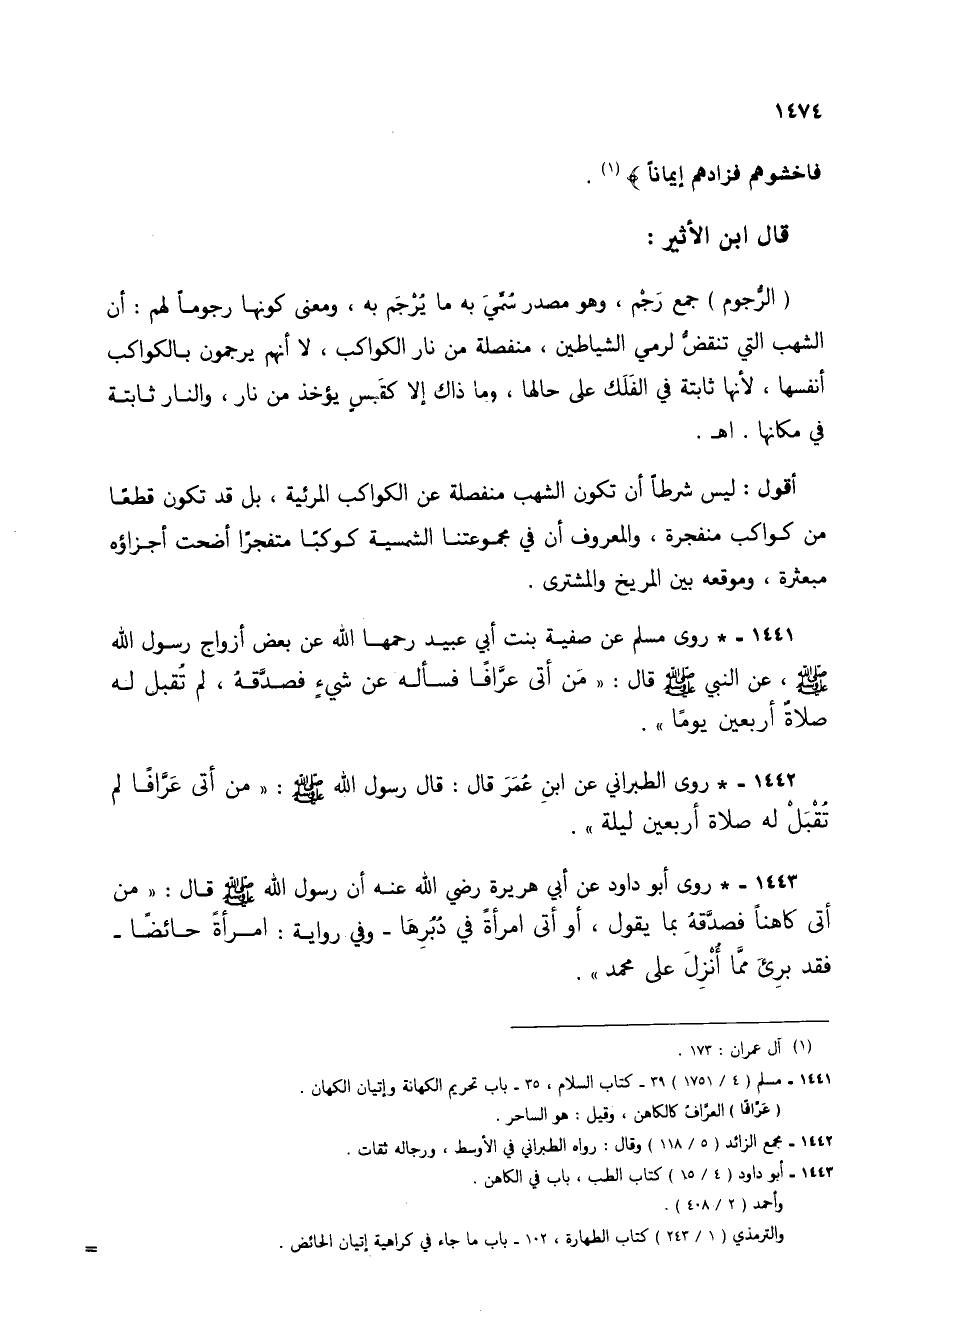 ١٤٧٤
فاخشوهم فزادهم إيماناً ﴾ (١) .
قال ابن الأثير :
( الرُّجوم ) جمع رَجْم ، وهو مصدر سُمِّيَ به ما يُرْجَم به ، ومعنى كونها رجوماً لهم : أن
الشهب التي تنقضُّ لرمي الشياطين ، منفصلة من نار الكواكب ، لا أنهم يرجمون بالكواكب
أنفسها ، لأنها ثابتة في الفَلَك على حالها ، وما ذاك إلا كقَبسٍ يؤخذ من نار ، والنار ثابتة
في مكانها . اهـ .
أقول : ليس شرطاً أن تكون الشهب منفصلة عن الكواكب المرئية ، بل قد تكون قطعًا
من كواكب منفجرة ، والمعروف أن في مجموعتنا الشمسية كوكبًا متفجرًا أضحت أجزاؤه
مبعثرة ، وموقعه بين المريخ والمشترى .
١٤٤١ - * روى مسلم عن صفية بنت أبي عبيد رحمها الله عن بعض أزواج رسول الله
ﷺ ، عن النبي ﷺ قال : « مَن أتى عرَّافًا فسأله عن شيءٍ فصدَّقهُ ، لم تُقبل له
صلاةُ أربعين يومًا » .
١٤٤٢ - * روى الطبراني عن ابنِ عُمَرَ قال : قال رسول الله ﷺ : « من أتى عَرَّافًا لم
تُقْبَلْ له صلاة أربعين ليلة » .
١٤٤٣ - * روى أبو داود عن أبي هريرة رضي الله عنه أن رسول الله ﷺ قال : « من
أتى كاهناً فصدَّقهُ بما يقول ، أو أتى امرأةً في دُبُرِهَا - وفي رواية : امرأةً حائضًا -
فقد برِئَ ممَّا أُنْزِلَ على محمد » .
(١) آل عمران : ١٧٣ .
١٤٤١ - مسلم ( ٤ / ١٧٥١ ) ٣٩ - كتاب السلام ، ٣٥ - باب تحريم الكهانة وإتيان الكهان .
( عَرَّافًا ) العرَّافُ كالكاهن ، وقيل : هو الساحر .
١٤٤٢ - مجمع الزائد ( ٥ / ١١٨ ) وقال : رواه الطبراني في الأوسط ، ورجاله ثقات .
١٤٤٣ - أبو داود ( ٤ / ١٥ ) كتاب الطب ، باب في الكاهن .
وأحمد ( ٢ / ٤٠٨ ) .
والترمذي ( ١ / ٢٤٣ ) كتاب الطهارة ، ١٠٢ - باب ما جاء في كراهية إتيان الحائض . =